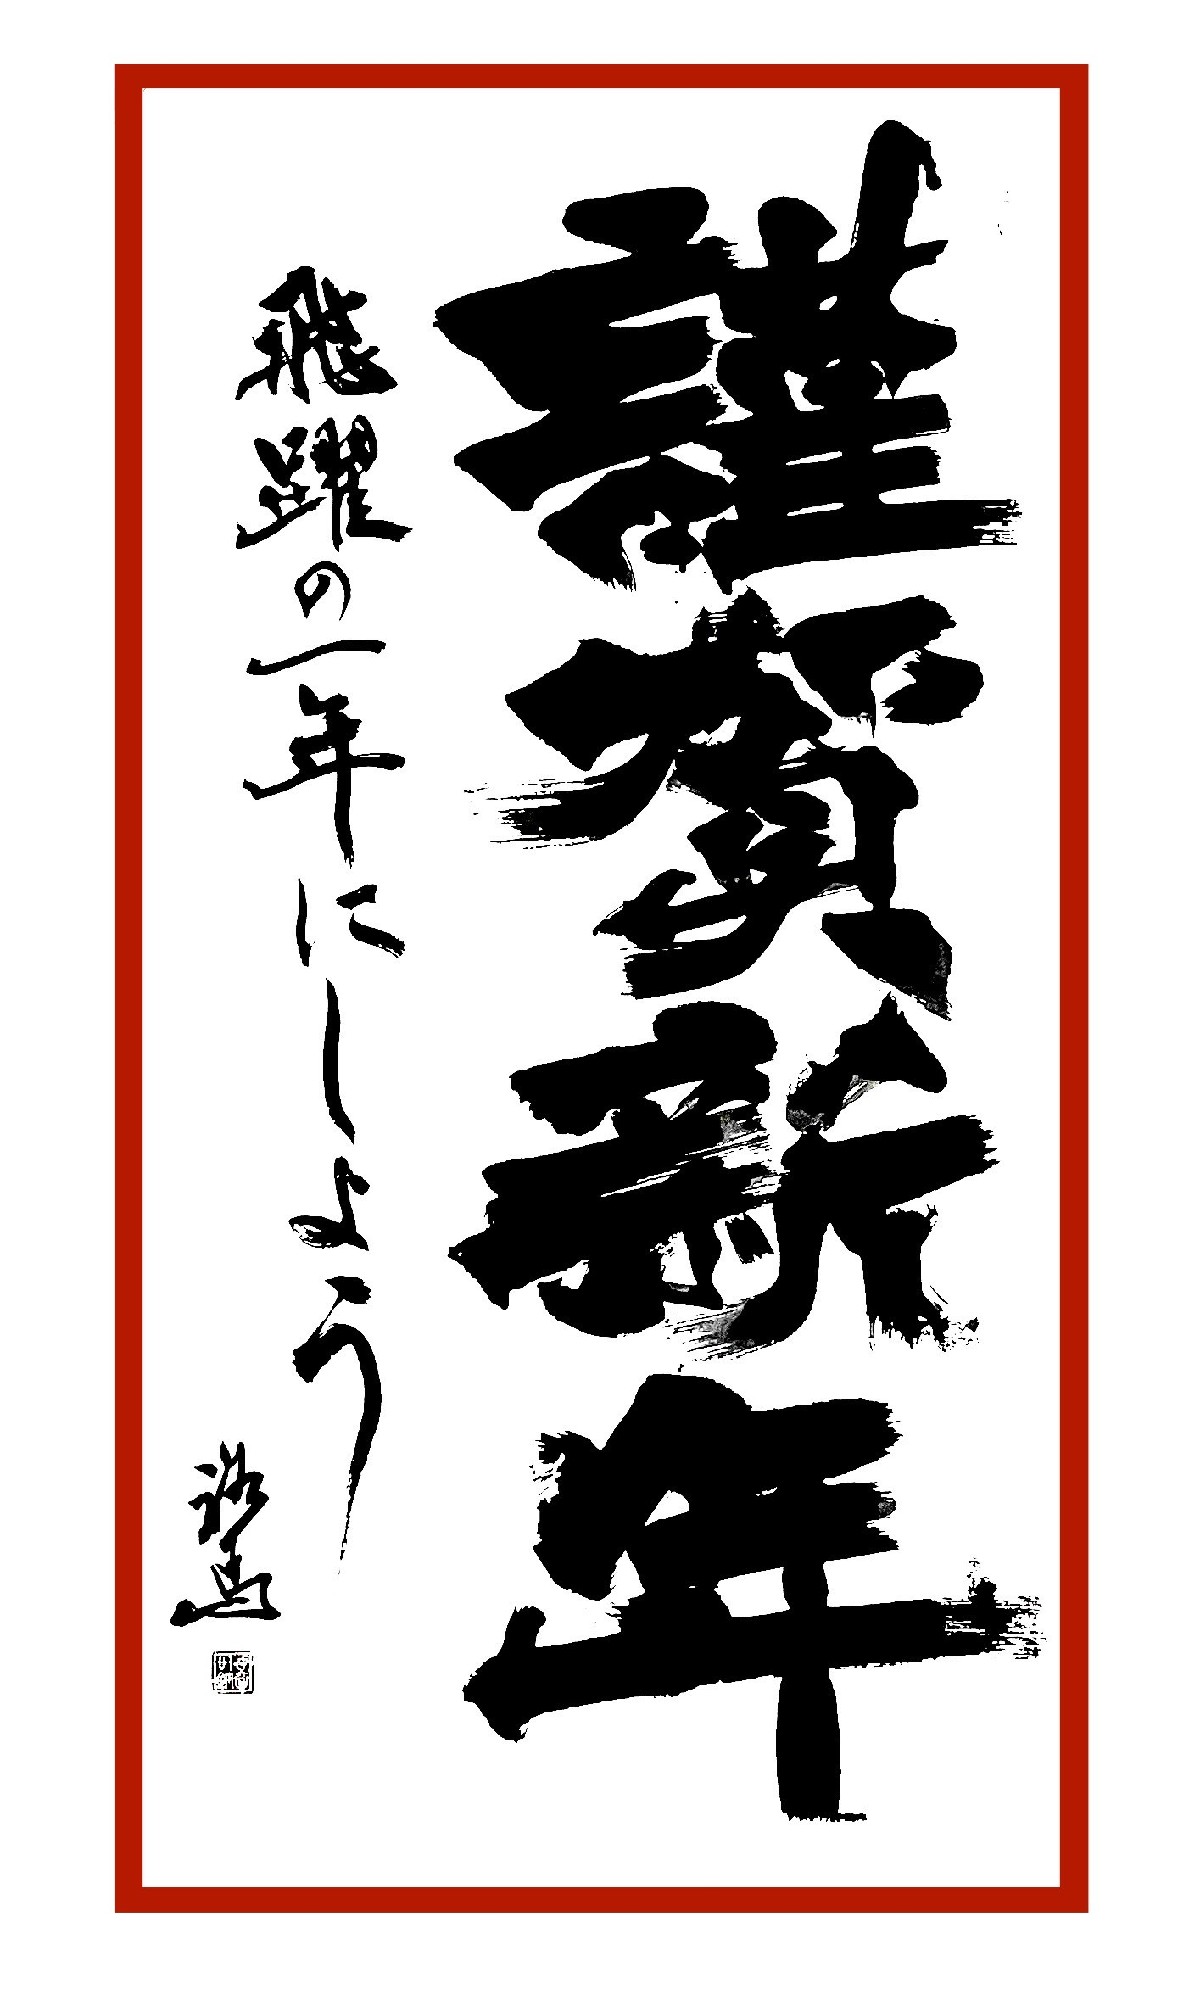 謹賀新年
飛躍の一年にしよう